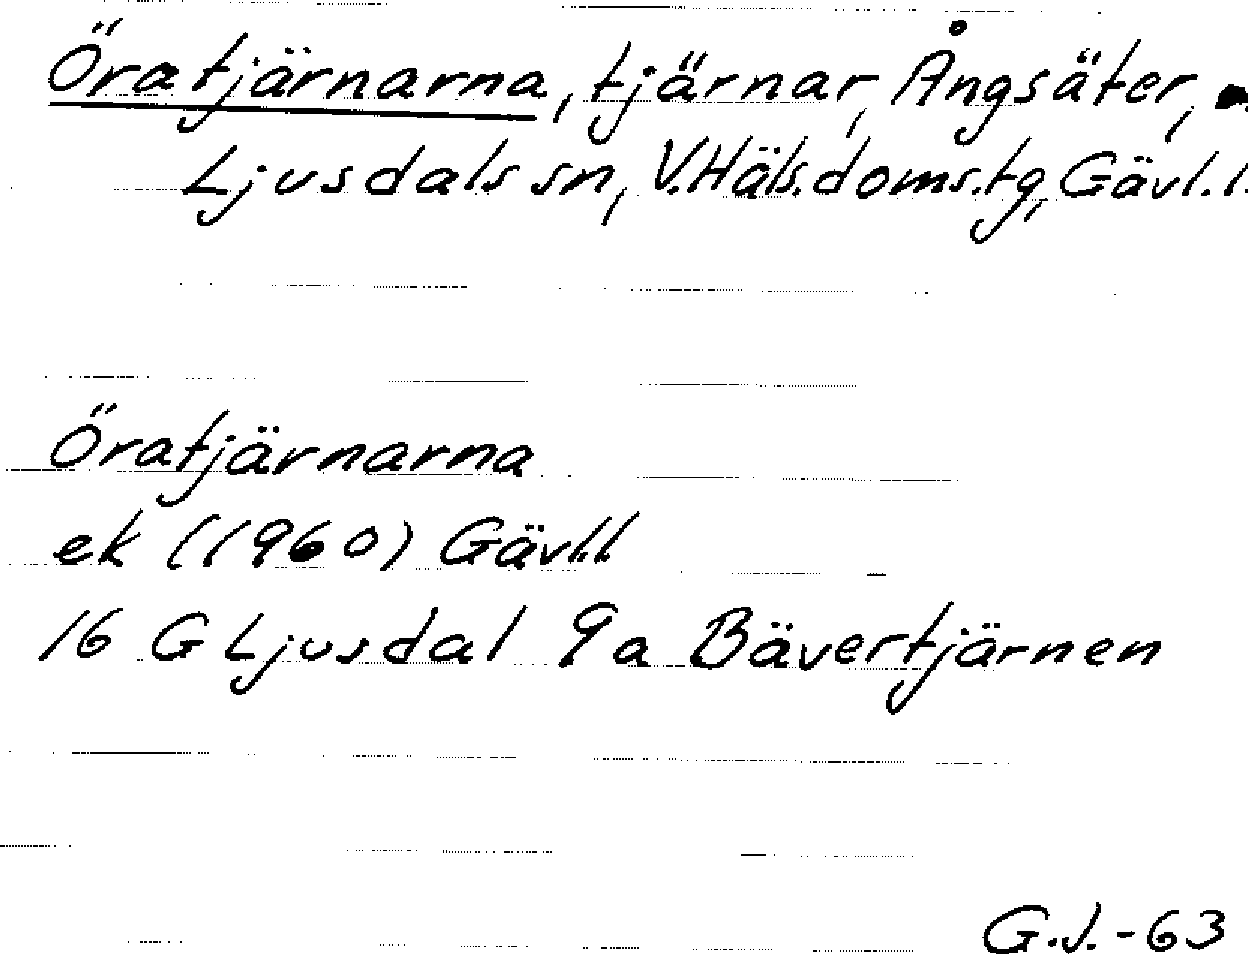 Öratjärnarna, tjärnar, Ångsäter,
Ljusdals sn, V.Häls.doms.tg, Gävl.l.
Öratjärnarna
ek (1960) Gävl.l.
16 G Ljusdal 9a Bävertjärnen
G.J.-63